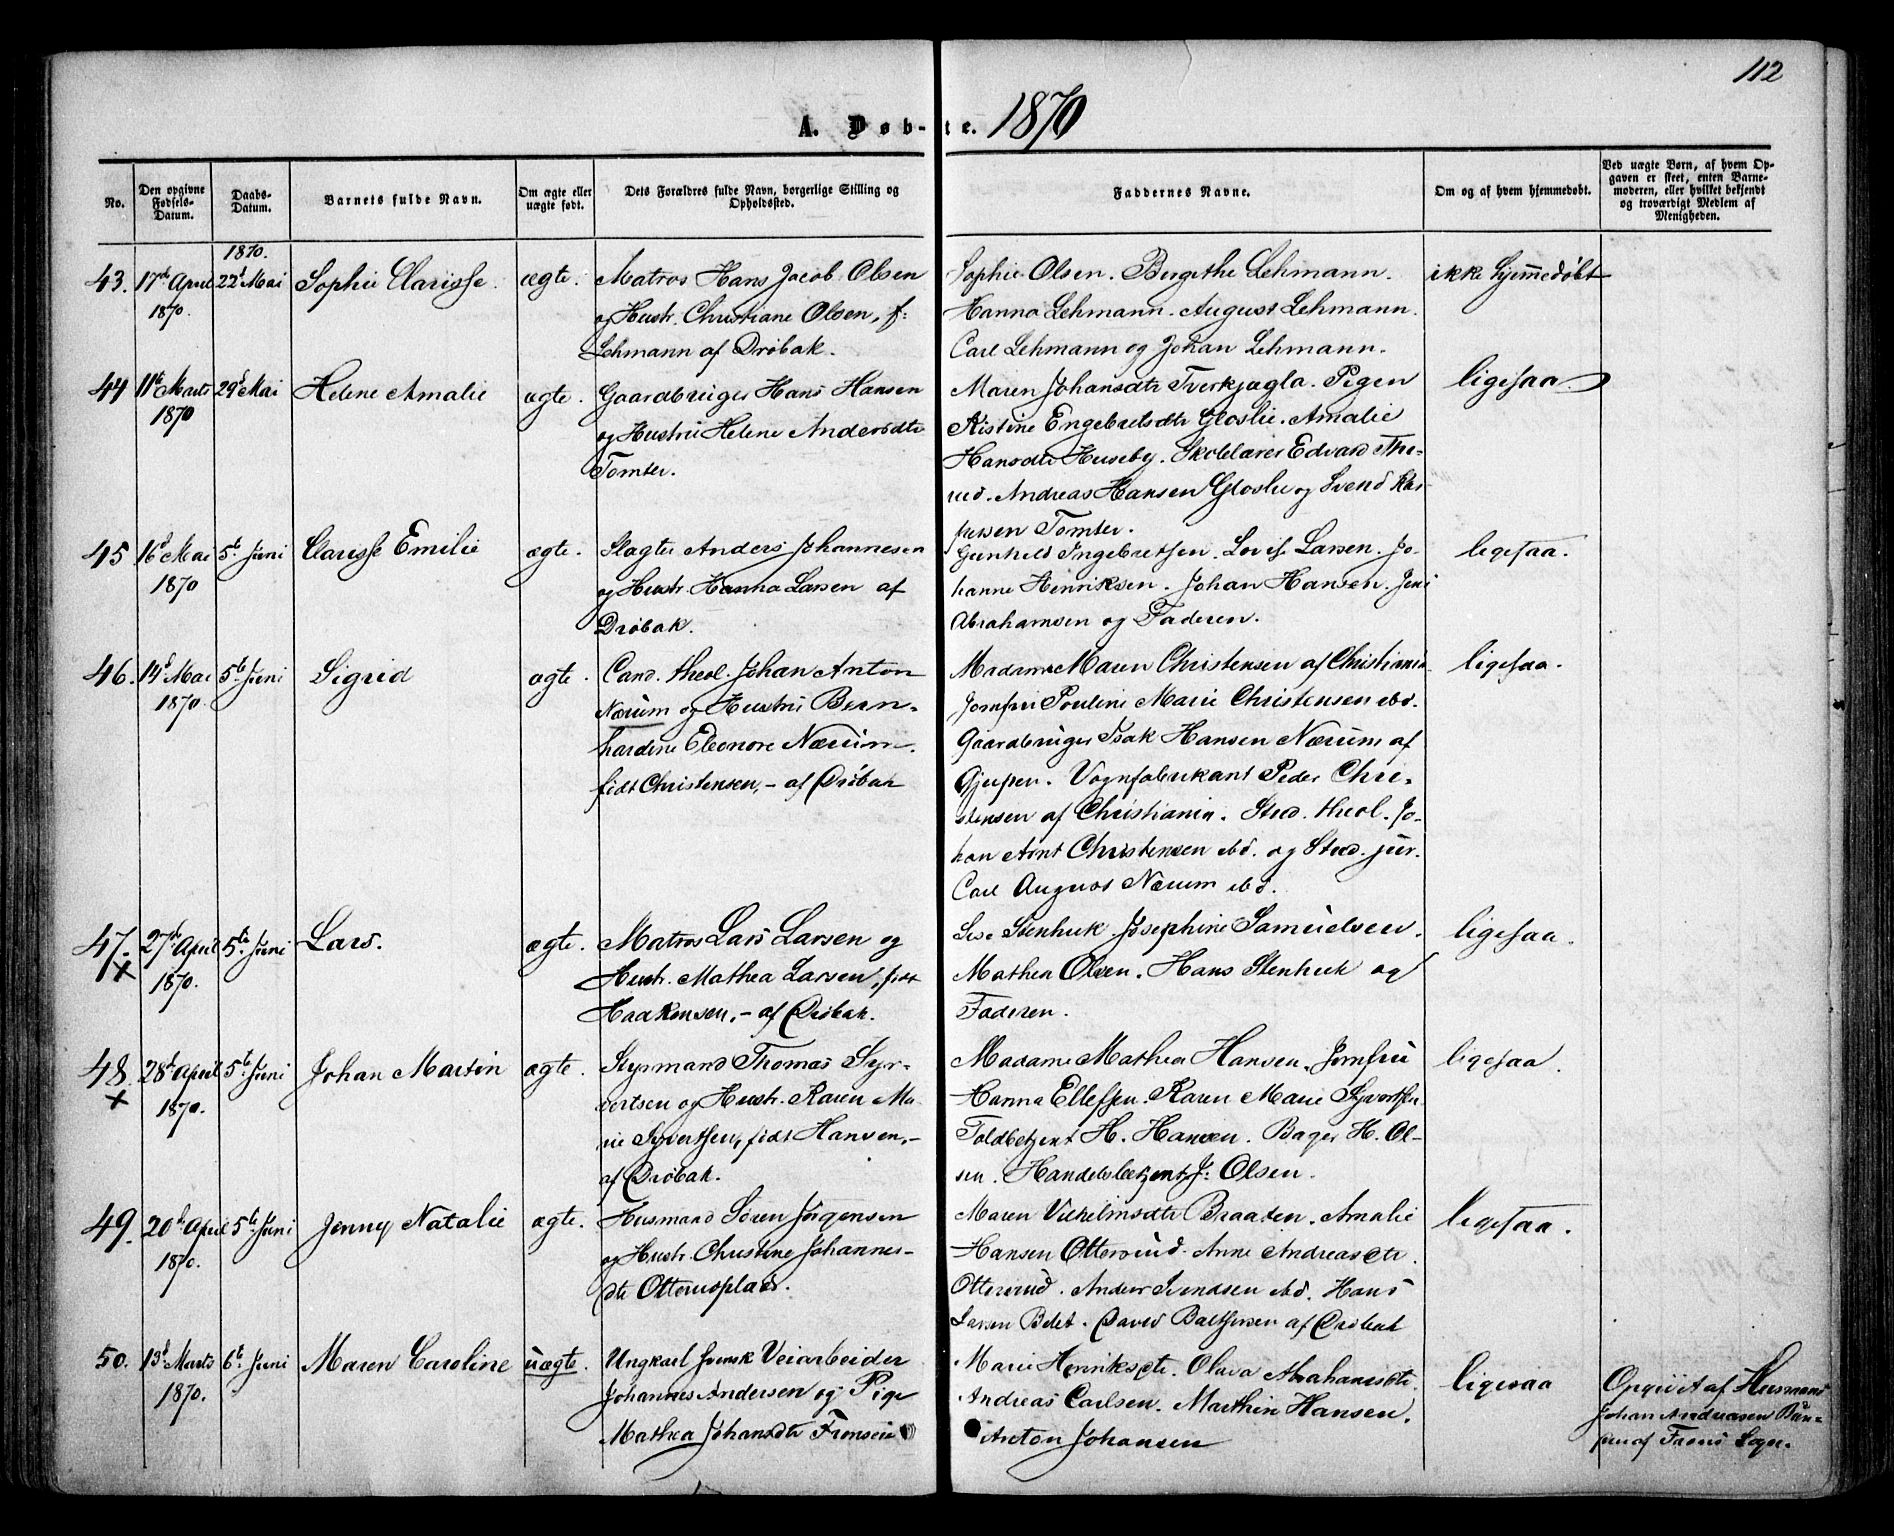 112
A. Døb-te. 1870
No.
Den opgivne Fødsels-Datum.
Daabs-Datum.
Barnets fulde Navn.
Om ægte eller uægte født.
Dets Forældres fulde Navn, borgerlige Stilling og Opholdssted.
Faddernes Navne.
Om og af hvem hjemmedøbt.
Ved uægte Børn, af hvem Opgaven er skeet, enten Barnemoderen, eller hvilket bekjendt og troværdigt Medlem af Menigheden.
1870.
43. 17de April 22d Mai Sophie Clarisse. ægte. Matros Hans Jacob Olsen
1870. og Hustr. Christiane Olsen, f:
Lehmann af Drøbak.
Sophie Olsen. Bergithe Lehmann. ikke hjemmedøbt
Hanna Lehmann. August Lehmann.
Carl Lehmann og Johan Lehmann.
44 11te Marts 29d Mai Helene Amalie ægte. Gaardbruger Hans Hansen
1870 og Hustru Helene Andersdtr
Tomter.
Maren Johansdtr Tverkjægla. Pigen ligesaa.
Kistine Engebretsdtr Gloslie. Amalie
Hansdtr Huseby. Skolelærer Edvard The-
rud. Andreas Hansen Gloslie og Svend Kas-
persen Tomter.
45 16d Mai 5te Juni Clarisse Emilie ægte. Slagter Anders Johannesen
1870 og Hustr. Hanna Larsen af
Drøbak.
Gunhild Ingebretsen. Lovise Larsen. Jo- ligesaa.
hanne Henriksen. Johan Hansen. Jens
Abrahamsen og Faderen.
46. 14d Mai 5te Juni Sigrid ægte. Cand. theol. Johan Anton
1870. Nærum og Hustru Bern-
hardine Eleonore Nærum.
født Christensen, - af Drøbak
Madame Maren Christensen af Christiania ligesaa.
Jomfru Pouline Marie Christensen ibd.
Gaardbruger Isak Hansen Nærum af
Gjerpen. Vognfabrikant Peder Chri-
stensen af Christiania. Stud. theol. Jo-
han Arnt Christensen ibd. og Stud. jur.
Carl August Nærum ibd.
47. 27de April 5te Juni Lars. ægte. Matros Lars Larsen og
x 1870. Hustr. Mathea Larsen, født
Haakensen, - af Drøbak.
Lise Stenhuk. Josephine Samuelsen. ligesaa.
Mathea Olsen. Hans Stenhuk og
Faderen.
48. 28d April 5te Juni Johan Martin ægte. Styrmand Thomas Syv-
x 1870. ertsen og Hustr. Karen Ma-
rie Syvertsen, født Hansen, -
af Drøbak.
Madame Mathea Hansen. Jomfru ligesaa.
Hanna Ellefsen. Karen Marie Syvertsen
Toldbetjent H. Hansen. Bager H. Ol-
sen. Handelsbetjent J: Olsen.
49. 20d April 5te Juni Jenny Natalie ægte. Husmand Søren Jørgensen
1870. og Hustr. Christine Johannes-
dtr Otterusplads.
Maren Vilhelmsdtr Braaten. Amalie ligesaa.
Hansen Otterud. Anne Andreasdtr.
Otterud. Anders Svendsen ibd. Hans
Larsen Belet. David Baltsersen af Drøbak
50. 13d Marts 6te Juni Maren Caroline uægte. Ungkarl svensk Veiarbeider
1870. Johannes Andersen og Pige
Mathea Johansdtr
Marie Henriksdtr. Olava Abrahamsdtr. ligesaa Opgivet af Husmand
Andreas Carlsen. Marthin Hansen. Johan Andreasen
Anton Johansen af Frons Sogn.